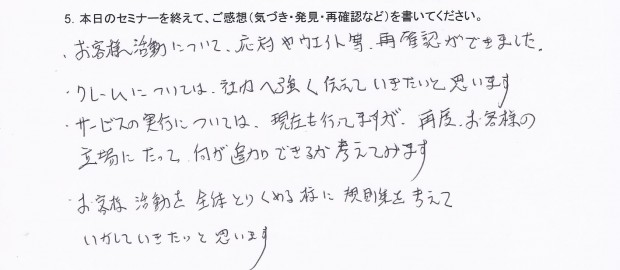 5. 本日のセミナーを終えて、ご感想(気づき・発見・再確認など)を書いてください。
・お客様活動について、応対やウエイト等、再確認ができました。
・クレームについては、社内へ強く伝えていきたいと思います
・サービスの実行については、現在も行ってますが、再度、お客様の
立場にたって、何が追加できるか考えてみます
・お客様活動を全体とりくめる様に規則集を考えて
いかしていきたいと思います